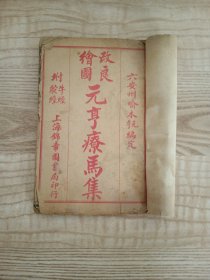 六安州喻本亨編定
改良
繪圖
元亨療馬集
附牛經
駝經
上海錦章圖書局印行